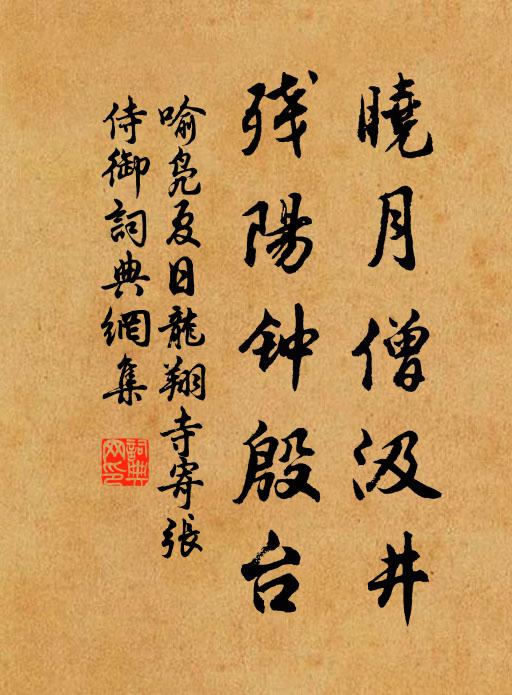 曉月僧汲井
残陽钟殷台
喻凫夏日龍翔寺寄張
侍御詞典網集
詞典網印